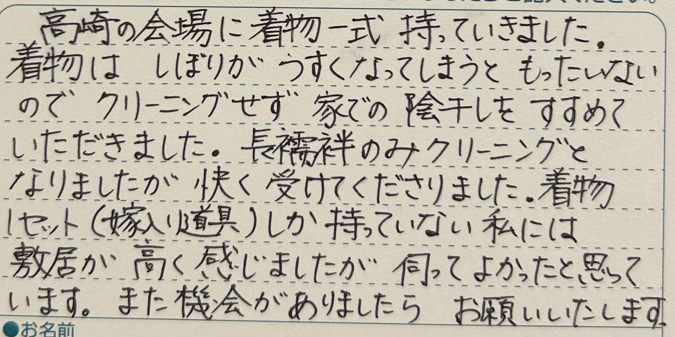 高崎の会場に着物一式 持っていきました。
着物は しぼりが うすくなってしまうと もったいない
ので クリーニングせず 家での 陰干しを すすめて
いただきました。長襦袢のみクリーニングと
なりましたが 快く 受けてくださりました。着物
1セット(嫁入り道具)しか 持っていない 私には
敷居が 高く 感じましたが 伺ってよかったと思って
います。また機会がありましたら お願いいたします。
●お名前